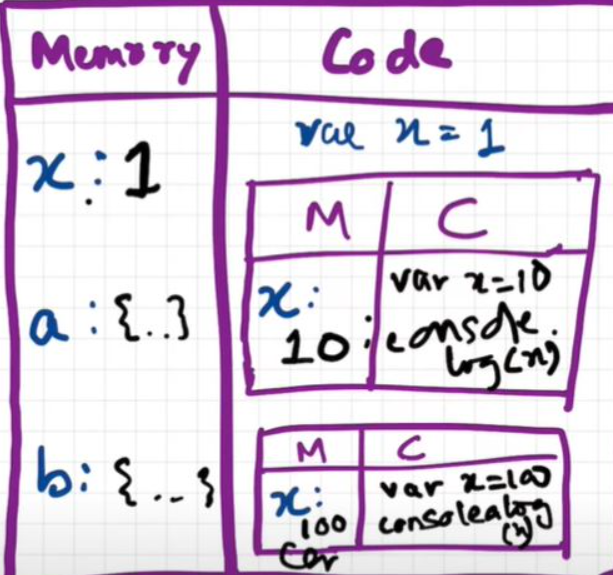 Memory Code
x : 1
var x = 1
M C
x : 10 ;
var x = 10
console.
log(x)
a : {..}
b : {...}
M C
x : 100
var x = 100
consolealog
(x)